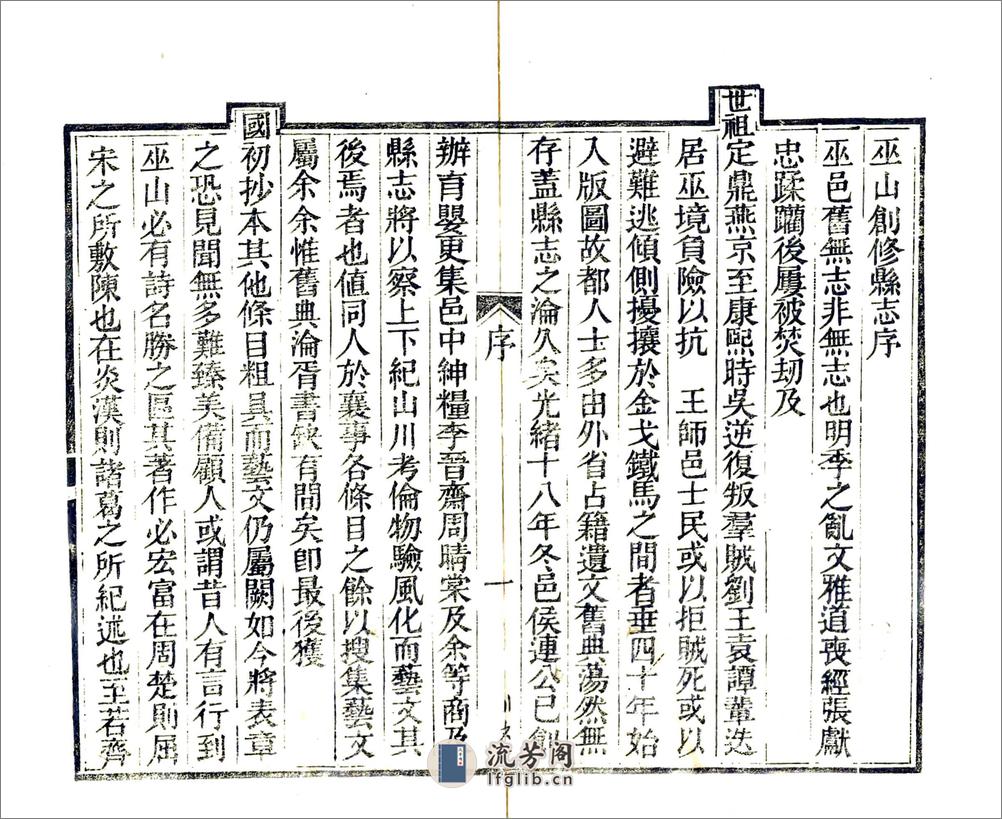 巫山創修縣志序
巫邑舊無志非無志也明季之亂文雅道喪經張獻
忠蹂躪後屢被焚刧及
世祖定鼎燕京至康熙時吳逆復叛羣賊劉王袁譚輩迭
居巫境負險以抗　王師邑士民或以拒賊死或以
避難逃傾側擾攘於金戈鐵馬之間者垂四十年始
入版圖故都人士多由外省占籍遺文舊典蕩然無
存蓋縣志之淪久矣光緒十八年冬邑侯連公已創
序
一
辦育嬰更集邑中紳糧李晉齋周晴棠及余等商及
縣志將以察上下紀山川考倫物驗風化而藝文其
後焉者也値同人於襄事各條目之餘以搜集藝文
屬余余惟舊典淪胥書缺有間矣卽最後獲
國初抄本其他條目粗具而藝文仍屬闕如今將表章
之恐見聞無多難臻美備顧人或謂昔人有言行到
巫山必有詩名勝之區其著作必宏富在周楚則屈
宋之所敷陳也在炎漢則諸葛之所紀述也至若齊
流芳阁
lfglib.cn